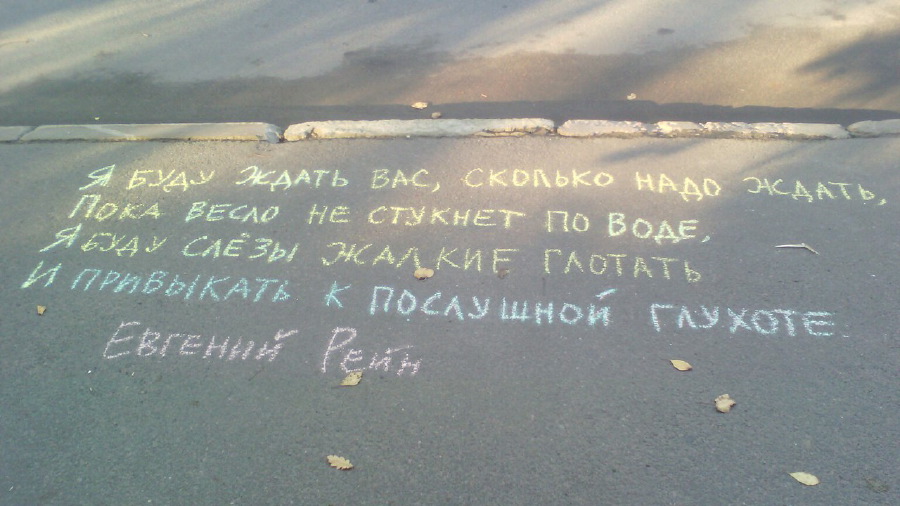 Я БУДУ ЖДАТЬ ВАС, СКОЛЬКО НАДО ЖДАТЬ,
ПОКА ВЕСЛО НЕ СТУКНЕТ ПО ВОДЕ,
Я БУДУ СЛЁЗЫ ЖАЛКИЕ ГЛОТАТЬ
И ПРИВЫКАТЬ К ПОСЛУШНОЙ ГЛУХОТЕ
ЕВГЕНИЙ РЕЙН